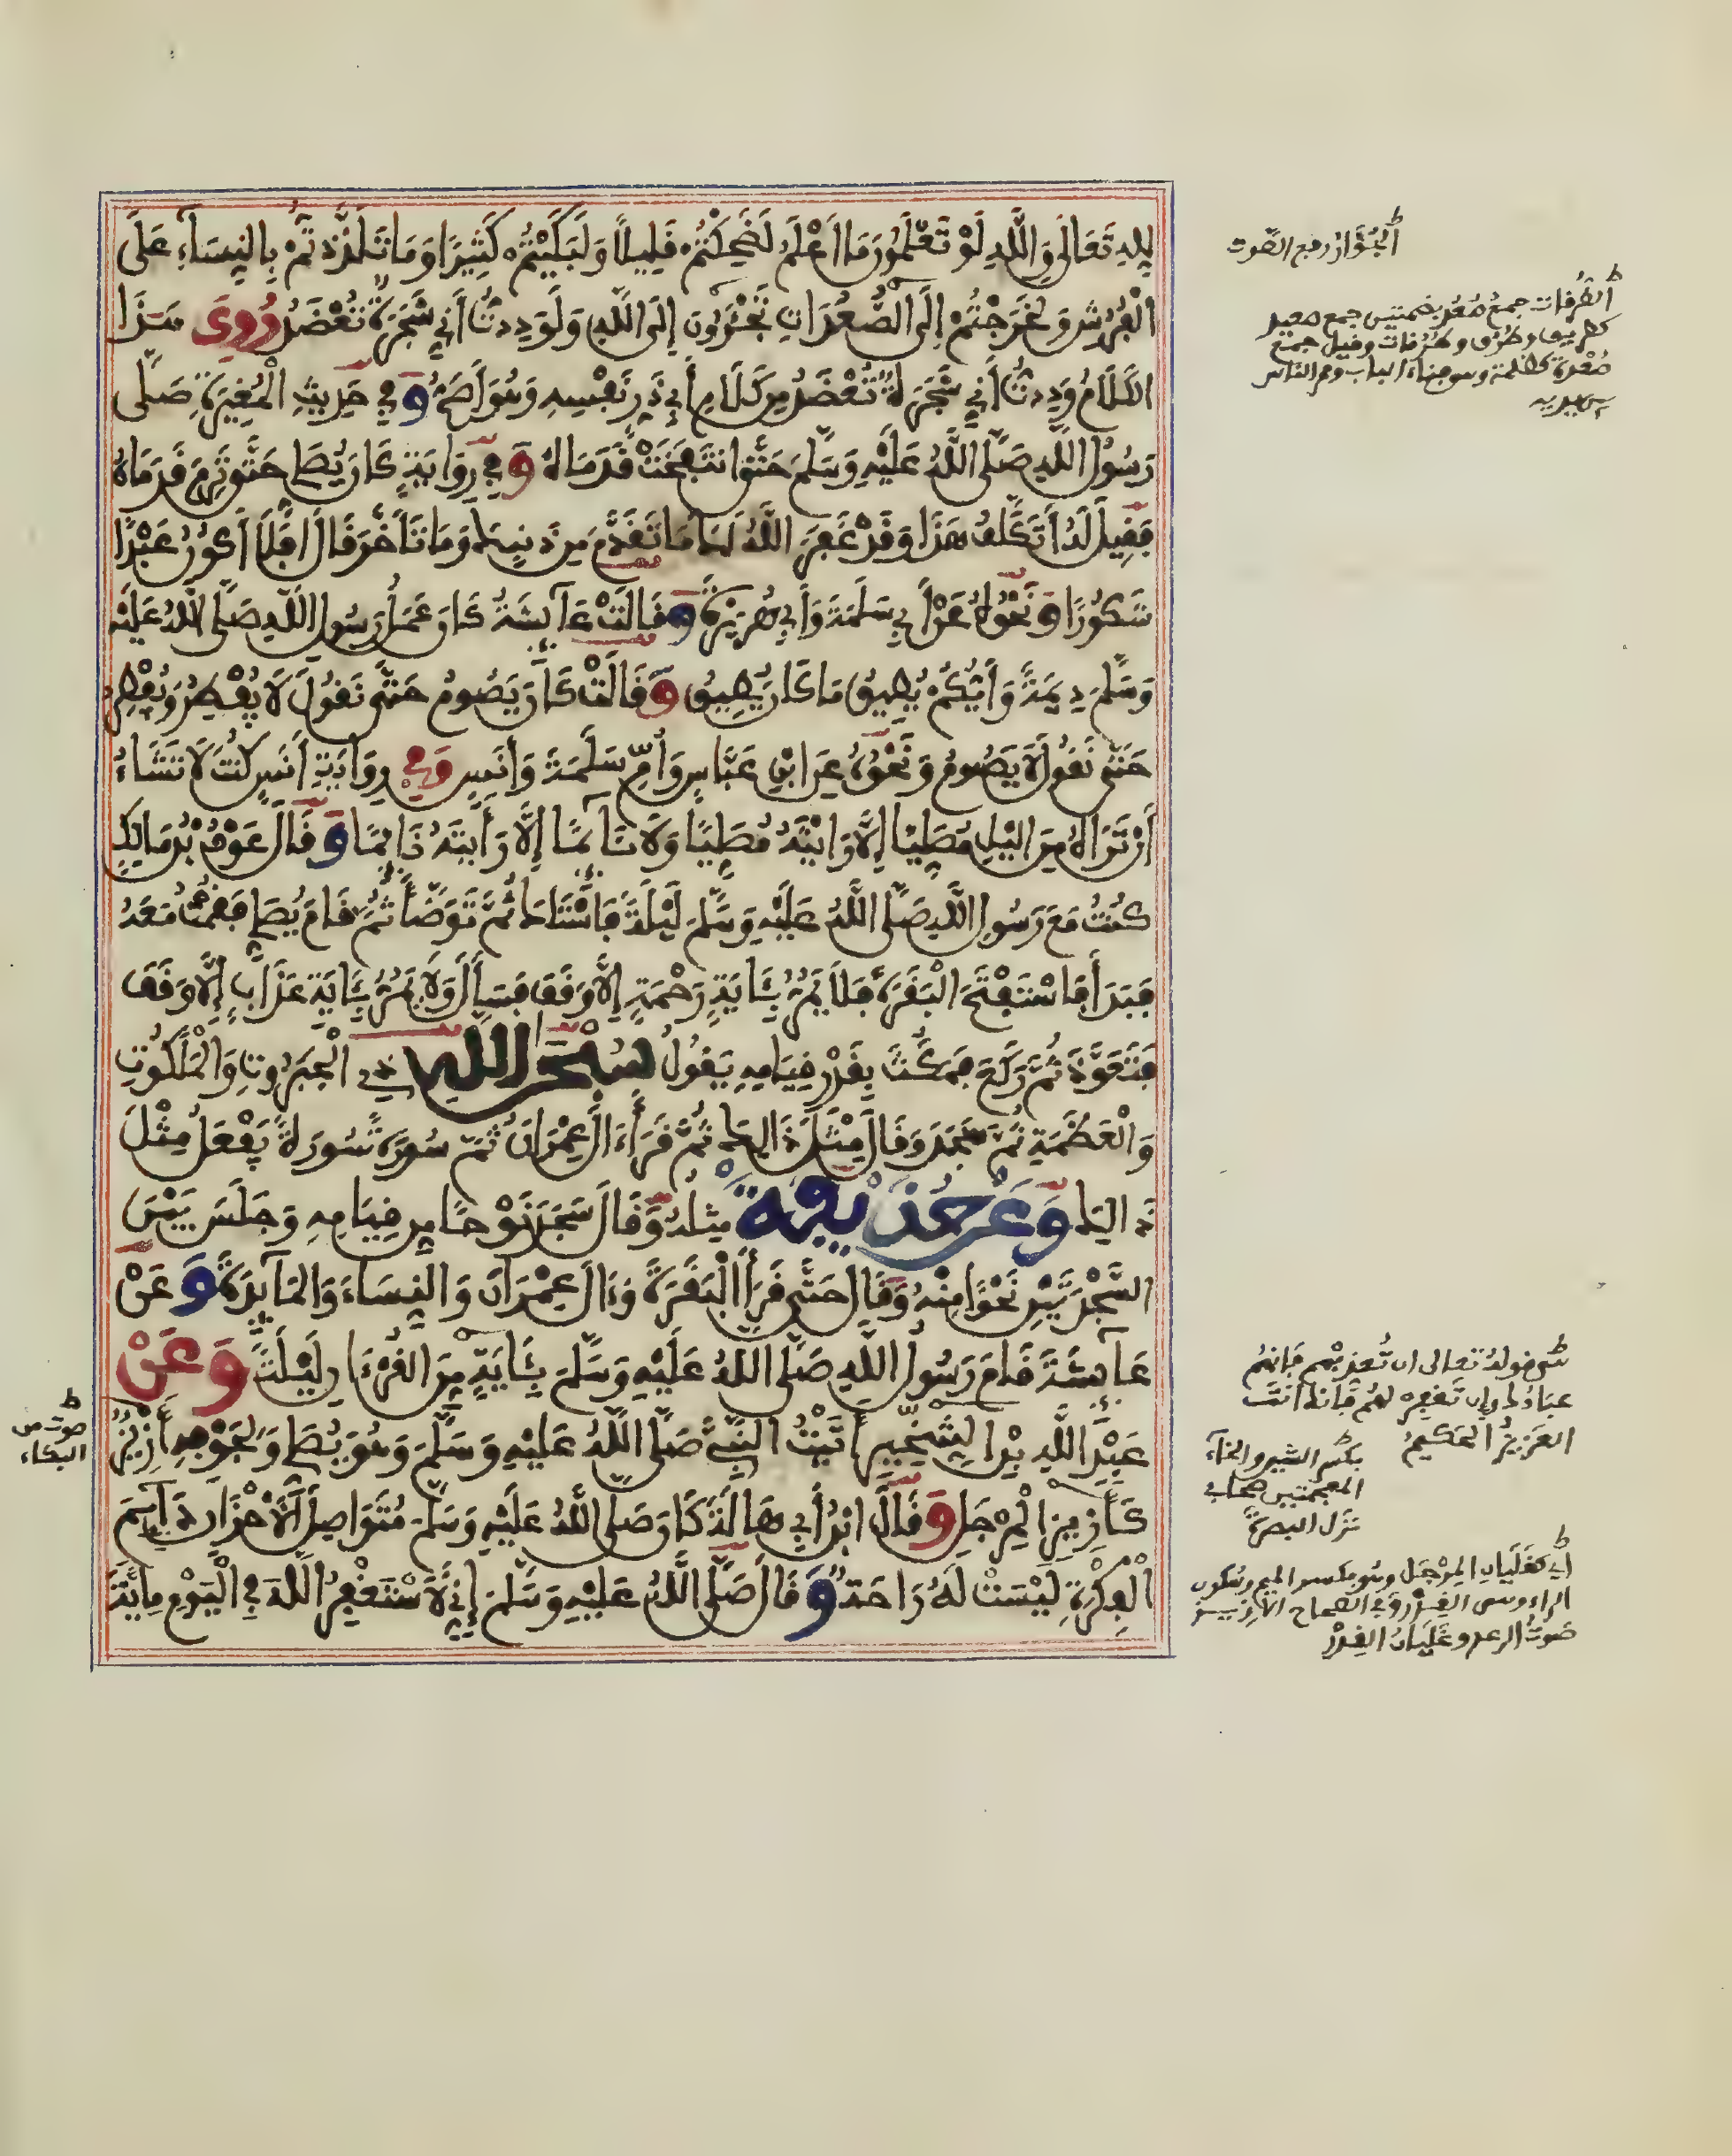 لِلهِ تَعَالَى وَاللَّهِ لَوْ تَعْلَمُونَ مَا أَعْلَمُ لَضَحِكْتُمْ قَلِيلًا وَلَبَكَيْتُمْ كَثِيرًا وَمَا تَلَذَّذْتُمْ بِالنِّسَاءِ عَلَى
الْفُرُشِ وَلَخَرَجْتُمْ إِلَى الصُّعُدَاتِ تَجْـَٔرُونَ إِلَى اللَّهِ وَلَوَدِدتُّ أَنِّي شَجَرَةٌ تُعْضَدُ رُوِيَ هَذَا
الْكَلَامُ وَدِدتُّ أَنِّي شَجَرَةٌ تُعْضَدُ مِن كَلَامِ أَبِي ذَرٍّ نَفْسِهِ وَهُوَ أَصَحُّ وَفِي حَدِيثِ الْمُغِيرَةِ صَلَّى
رَسُولُ اللَّهِ صَلَّى اللَّهُ عَلَيْهِ وَسَلَّمَ حَتَّى انتَفَخَتْ قَدَمَاهُ وَفِي رِوَايَةٍ كَانَ يُصَلِّي حَتَّى تَرِمَ قَدَمَاهُ
فَقِيلَ لَهُ أَتَكَلَّفُ هَذَا وَقَدْ غَفَرَ اللَّهُ لَكَ مَا تَقَدَّمَ مِن ذَنبِكَ وَمَا تَأَخَّرَ قَالَ أَفَلَا أَكُونُ عَبْدًا
شَكُورًا وَنَحْوُهُ عَنْ أَبِي سَلَمَةَ وَأَبِي هُرَيْرَةَ وَقَالَتْ عَائِشَةُ كَانَ عَمَلُ رَسُولِ اللَّهِ صَلَّى اللَّهُ عَلَيْهِ
وَسَلَّمَ دِيمَةً وَأَيُّكُمْ يُطِيقُ مَا كَانَ يُطِيقُ وَقَالَتْ كَانَ يَصُومُ حَتَّى نَقُولَ لَا يُفْطِرُ وَيُفْطِرُ
حَتَّى نَقُولَ لَا يَصُومُ وَنَحْوُهُ عَنِ ابْنِ عَبَّاسٍ وَأُمِّ سَلَمَةَ وَأَنَسٍ وَفِي رِوَايَةِ أَنَسٍ كُنْتَ لَا تَشَاءُ
أَن تَرَاهُ مِنَ الَّيْلِ مُصَلِّيًا إِلَّا رَأَيْتَهُ مُصَلِّيًا وَلَا نَائِمًا إِلَّا رَأَيْتَهُ نَائِمًا وَقَالَ عَوْفُ بْنُ مَالِكٍ
كُنْتُ مَعَ رَسُولِ اللَّهِ صَلَّى اللَّهُ عَلَيْهِ وَسَلَّمَ لَيْلَةً فَاسْتَاكَ ثُمَّ تَوَضَّأَ ثُمَّ قَامَ يُصَلِّي فَقُمْتُ مَعَهُ
فَبَدَأَ فَاسْتَفْتَحَ الْبَقَرَةَ فَلَا يَمُرُّ بِـَٔايَةِ رَحْمَةٍ إِلَّا وَقَفَ فَسَأَلَ وَلَا يَمُرُّ بِـَٔايَةِ عَذَابٍ إِلَّا وَقَفَ
فَتَعَوَّذَ ثُمَّ رَكَعَ فَمَكَثَ بِقَدْرِ قِيَامِهِ يَقُولُ سُبْحَنَ اللَّهِ ذِي الْجَبَرُوتِ وَالْمَلَكُوتِ
وَالْعَظَمَةِ ثُمَّ سَجَدَ وَقَالَ مِثْلَ ذَالِكَ ثُمَّ قَرَأَ ءَالَ عِمْرَانَ ثُمَّ سُورَةً سُورَةً يَفْعَلُ مِثْلَ
ذَالِكَ وَعَنْ حُذَيْفَةَ مِثْلُهُ وَقَالَ سَجَدَ نَحْوًا مِن قِيَامِهِ وَجَلَسَ بَيْنَ
السَّجْدَتَيْنِ نَحْوًا مِنْهُ وَقَالَ حَتَّى قَرَأَ الْبَقَرَةَ وَءَالَ عِمْرَانَ وَالنِّسَاءَ وَالْمَائِدَةَ وَعَنْ
عَائِشَةَ قَامَ رَسُولُ اللَّهِ صَلَّى اللَّهُ عَلَيْهِ وَسَلَّمَ بِـَٔايَةٍ مِنَ الْقُرْءَانِ لَيْلَةً وَعَنْ
عَبْدِ اللَّهِ بْنِ الشِّخِّيرِ أَتَيْتُ النَّبِيَّ صَلَّى اللَّهُ عَلَيْهِ وَسَلَّمَ وَهُوَ يُصَلِّي وَلِجَوْفِهِ أَزِيزٌ
كَأَزِيزِ الْمِرْجَلِ وَقَالَ ابْنُ أَبِي هَالَةَ كَانَ صَلَّى اللَّهُ عَلَيْهِ وَسَلَّمَ مُتَوَاصِلَ الْأَحْزَانِ دَائِمَ
الْفِكْرَةِ لَيْسَتْ لَهُ رَاحَةٌ وَقَالَ صَلَّى اللَّهُ عَلَيْهِ وَسَلَّمَ إِنِّي لَأَسْتَغْفِرُ اللَّهَ فِي الْيَوْمِ مِائَةَ
ط الْجُؤَارُ رفع الصَّوت
ط الطُّرُقات جمعُ صُعُدٍ بضمتين جمع صعيد
كطريق وطُرُق وطُرُقات وقيل جمع
صُعْدَة كظلمة وهو فناء الباب وممر الناس
ط هى قولهُ تعالى ان تُعَذِّبْهم فإنهُم
عبَادُكَ وإن تَغْفِرْ لهُم فإنك انتَ
العَزيزُ الحَكيمُ
ط بكسر الشين والخاء
المعجمتين صحابي
نزل البصرةَ
ط صوت من
البكاء
ط أي كغَلَيَان المِرْجَل وهو بكسر الميم وسكون
الراء وهى القِدْر وفي الصحاح الأزيز
صَوتُ الرعد وغَلَيَانُ القِدْر